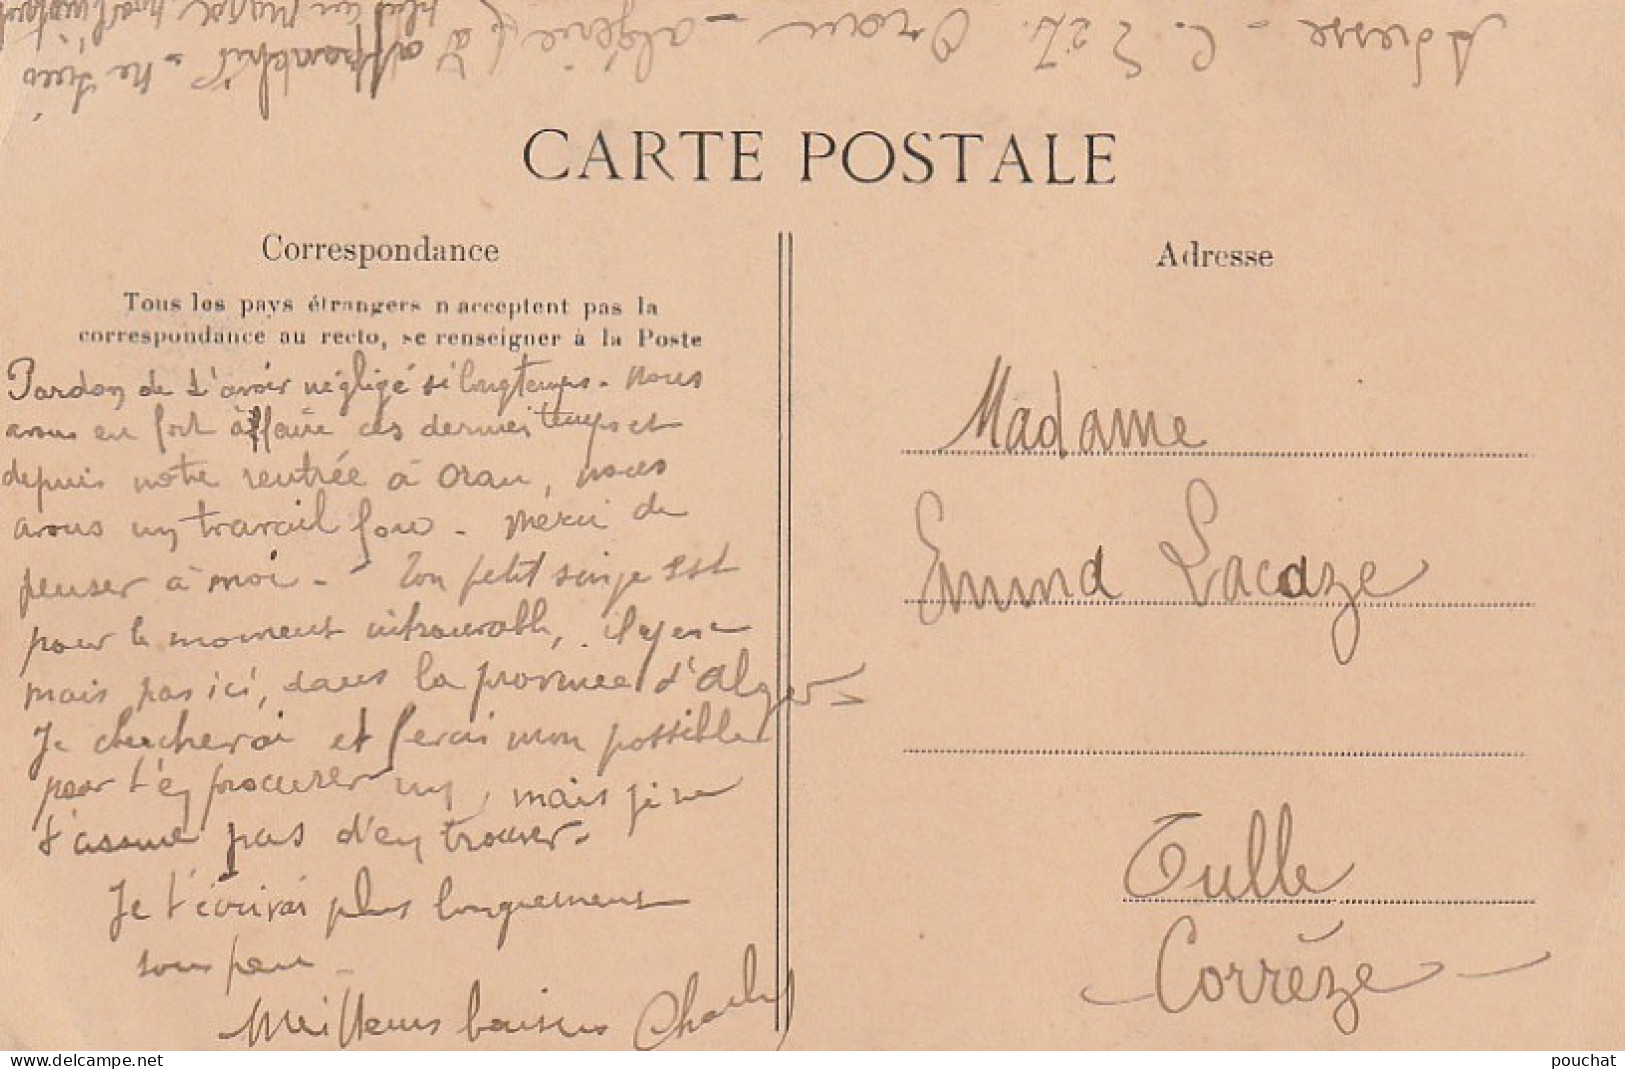 Adresse - Oran - algérie (à
affranchir - ne suis
plus au Maroc
CARTE POSTALE
Correspondance
Adresse
Tous les pays étrangers n'acceptent pas la
correspondance au recto, se renseigner à la Poste
Pardon de t'avoir négligé si longtemps - nous
avons eu fort affaire ces derniers temps et
depuis notre rentrée à Oran, nous
avons un travail fou - Merci de
penser à moi - Ton petit singe est
pour le moment introuvable, il y en a
mais pas ici, dans la province d'Alger -
Je chercherai et ferai mon possible
pour t'en procurer un, mais je ne
t'assure pas d'en trouver -
Je t'écrirai plus longuement
sous peu -
Meilleurs baisers Charles
Madame
Emma Lacaze
Tulle
Corrèze
pouchat
www.delcampe.net